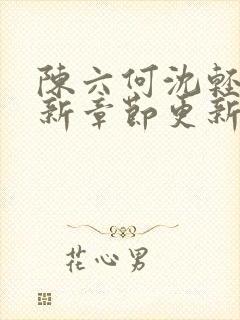 陳六何沈輕
新章節更新
花心男